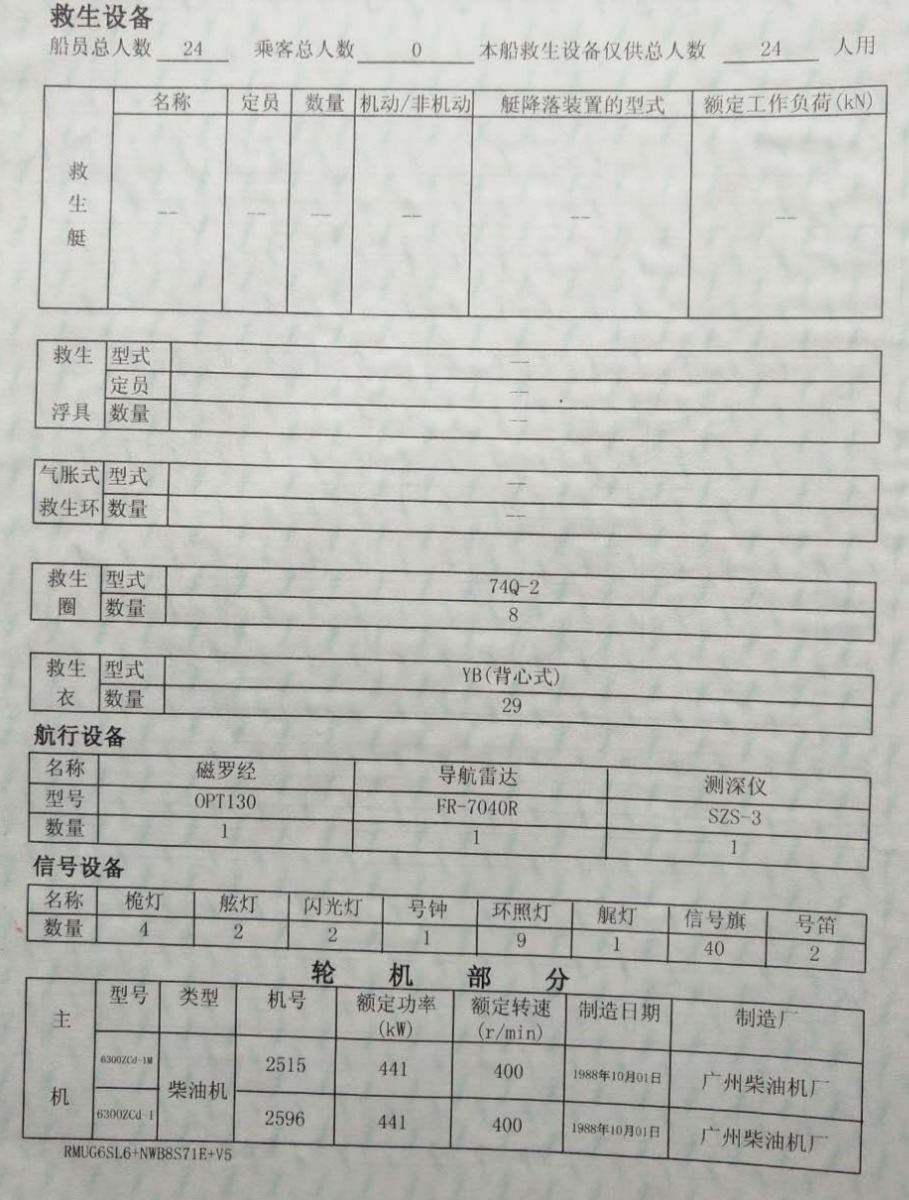 救生设备
船员总人数 24 乘客总人数 0 本船救生设备仅供总人数 24 人用
救生艇 名称 定员 数量 机动/非机动 艇降落装置的型式 额定工作负荷(kN)
-- -- -- -- -- --
救生浮具 型式 --
定员 --
数量 --
气胀式救生环 型式 --
数量 --
救生圈 型式 74Q-2
数量 8
救生衣 型式 YB(背心式)
数量 29
航行设备
名称 磁罗经 导航雷达 测深仪
型号 OPT130 FR-7040R SZS-3
数量 1 1 1
信号设备
名称 桅灯 舷灯 闪光灯 号钟 环照灯 艉灯 信号旗 号笛
数量 4 2 2 1 9 1 40 2
轮机部分
主机 型号 类型 机号 额定功率(kW) 额定转速(r/min) 制造日期 制造厂
6300ZCd-1M 柴油机 2515 441 400 1988年10月01日 广州柴油机厂
6300ZCd-1 2596 441 400 1988年10月01日 广州柴油机厂
RMUG6SL6+NWB8S71E+V5